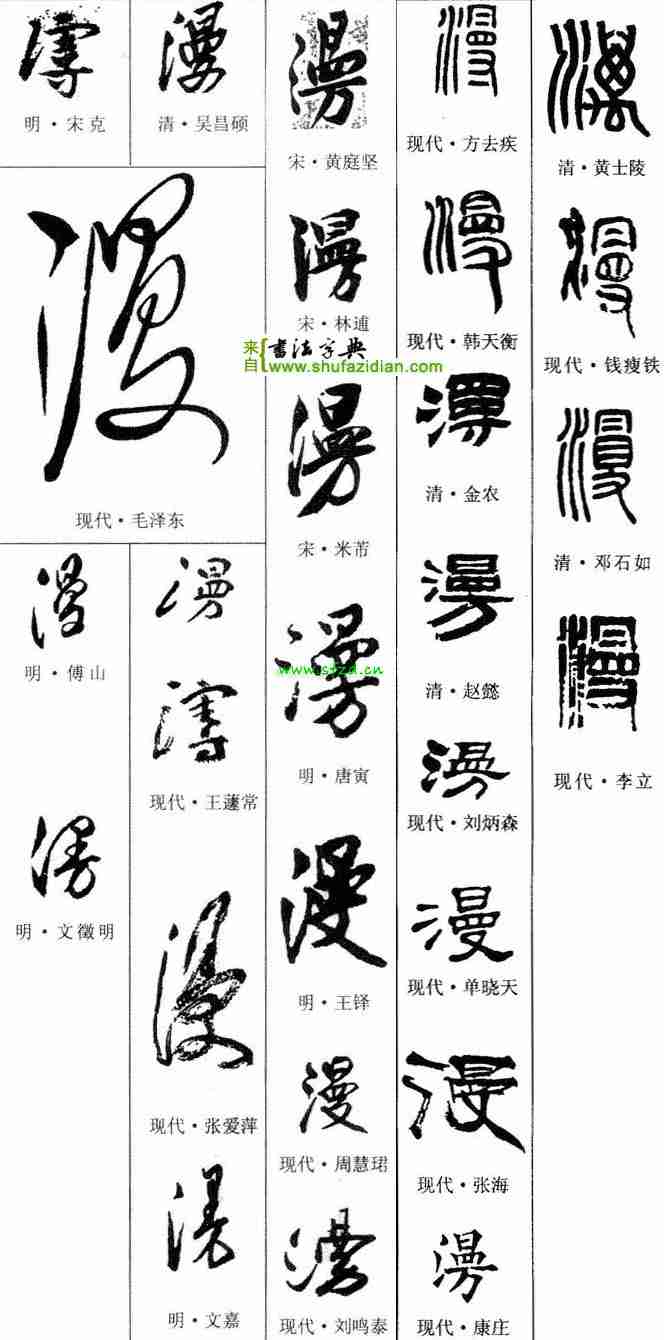 漫
明·宋克
漫
清·吴昌硕
漫
现代·毛泽东
漫
明·傅山
漫
明·文徵明
漫
漫
现代·王蘧常
漫
现代·张爱萍
漫
明·文嘉
漫
宋·黄庭坚
漫
宋·林逋
来自{书法字典
www.shufazidian.com
漫
宋·米芾
漫
www.sfzd.cn
明·唐寅
漫
明·王铎
漫
现代·周慧珺
漫
现代·刘鸣泰
漫
现代·方去疾
漫
现代·韩天衡
漫
清·金农
漫
清·赵懿
漫
现代·刘炳森
漫
现代·单晓天
漫
现代·张海
漫
现代·康庄
漫
清·黄士陵
漫
现代·钱瘦铁
漫
清·邓石如
漫
现代·李立